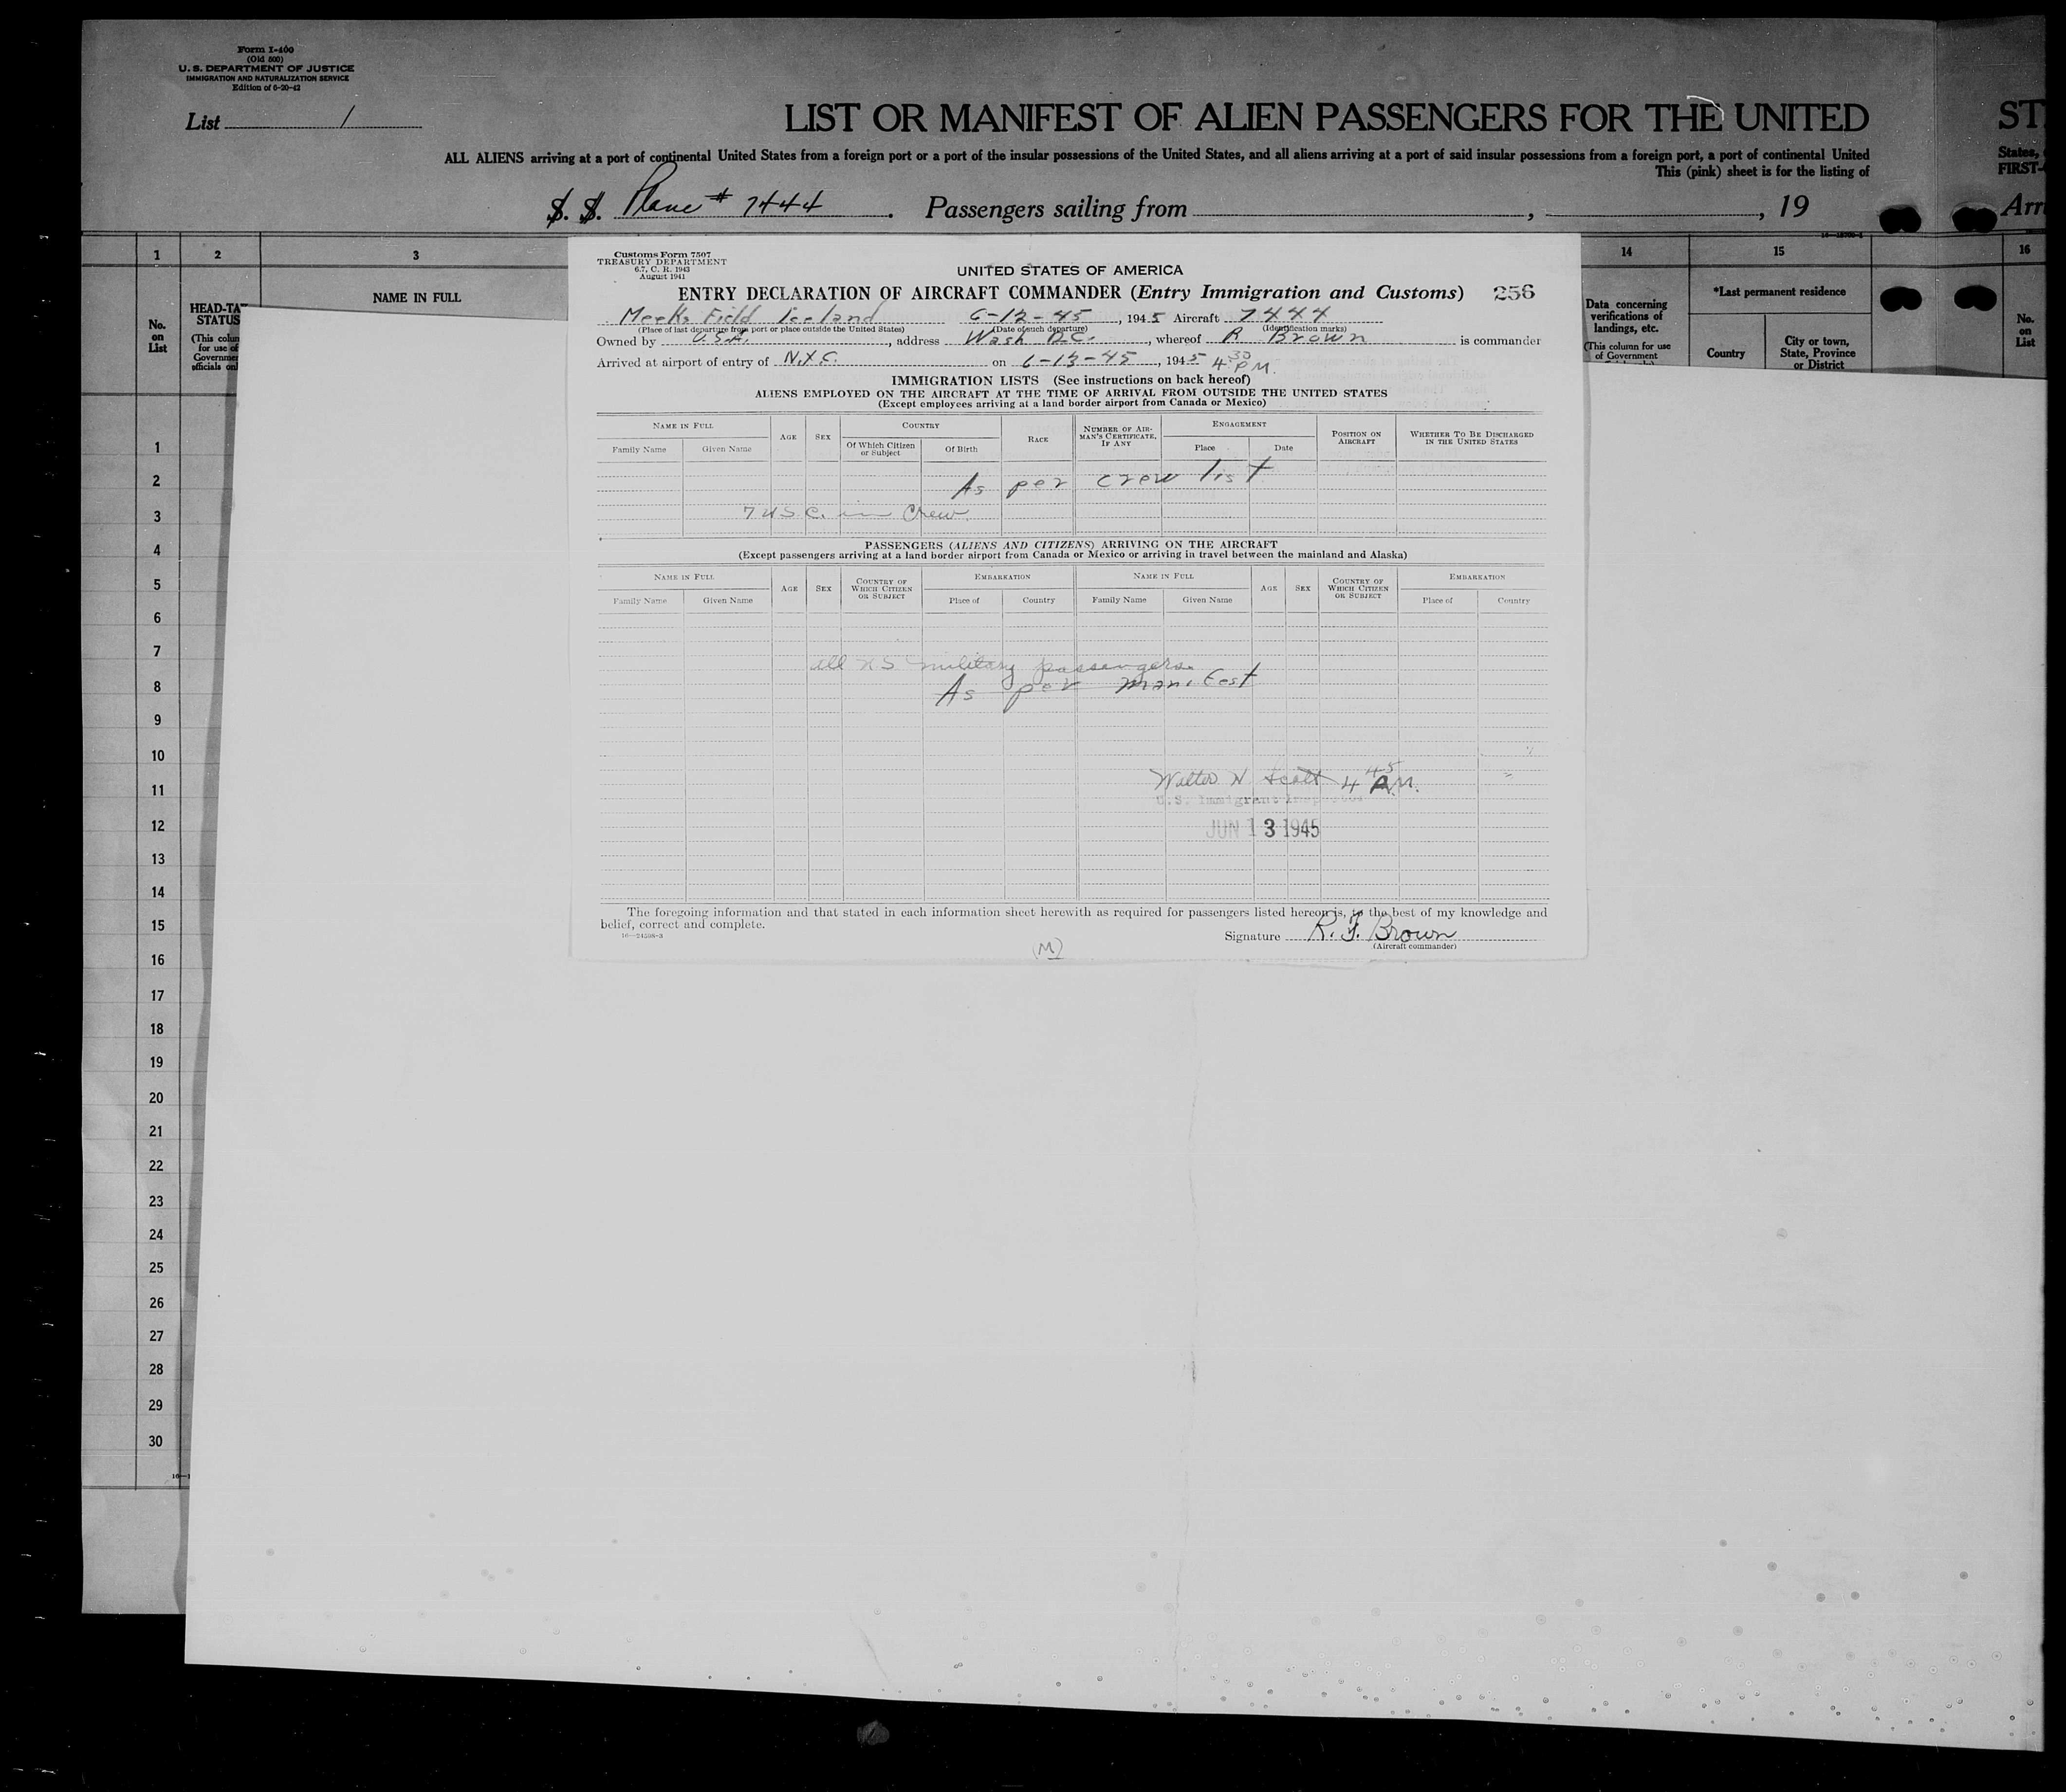 Form I-400
(Old 500)
U. S. DEPARTMENT OF JUSTICE
IMMIGRATION AND NATURALIZATION SERVICE
Edition of 6-20-42
List 1
LIST OR MANIFEST OF ALIEN PASSENGERS FOR THE UNITED
ST
ALL ALIENS arriving at a port of continental United States from a foreign port or a port of the insular possessions of the United States, and all aliens arriving at a port of said insular possessions from a foreign port, a port of continental United
States,
This (pink) sheet is for the listing of
FIRST-
S. S. Plane # 7444 . Passengers sailing from , , 19
Arri
1 2 3 14 15 16
No. on List
HEAD-TA STATUS
(This colum for use of Governmen officials onl
NAME IN FULL
Data concerning verifications of landings, etc.
(This column for use of Government
*Last permanent residence
Country
City or town, State, Province or District
No. on List
Customs Form 7507
TREASURY DEPARTMENT
6.7, C. R. 1943
August 1941
UNITED STATES OF AMERICA
ENTRY DECLARATION OF AIRCRAFT COMMANDER (Entry Immigration and Customs) 256
Meeks Field Iceland 6-12-45, 1945 Aircraft 7444
(Place of last departure from port or place outside the United States) (Date of such departure) (Identification marks)
Owned by U.S.A., address Wash D.C., whereof R Brown is commander
Arrived at airport of entry of N.Y.C. on 6-13-45, 1945 4 30 P.M.
IMMIGRATION LISTS (See instructions on back hereof)
ALIENS EMPLOYED ON THE AIRCRAFT AT THE TIME OF ARRIVAL FROM OUTSIDE THE UNITED STATES
(Except employees arriving at a land border airport from Canada or Mexico)
NAME IN FULL AGE SEX COUNTRY RACE NUMBER OF AIRMAN'S CERTIFICATE, IF ANY ENGAGEMENT POSITION ON AIRCRAFT WHETHER TO BE DISCHARGED IN THE UNITED STATES
Family Name Given Name Of Which Citizen or Subject Of Birth Place Date
As per crew list
7 USC. in Crew
PASSENGERS (ALIENS AND CITIZENS) ARRIVING ON THE AIRCRAFT
(Except passengers arriving at a land border airport from Canada or Mexico or arriving in travel between the mainland and Alaska)
NAME IN FULL AGE SEX COUNTRY OF WHICH CITIZEN OR SUBJECT EMBARKATION NAME IN FULL AGE SEX COUNTRY OF WHICH CITIZEN OR SUBJECT EMBARKATION
Family Name Given Name Place of Country Family Name Given Name Place of Country
all US military passengers.
As per manifest
Walter N. Scott 4 45 P.M.
U.S. Immigrant Inspector
JUN 13 1945
The foregoing information and that stated in each information sheet herewith as required for passengers listed hereon is, to the best of my knowledge and
belief, correct and complete.
16-24598-3
Signature R. F. Brown
(Aircraft commander)
(M)
1
2
3
4
5
6
7
8
9
10
11
12
13
14
15
16
17
18
19
20
21
22
23
24
25
26
27
28
29
30